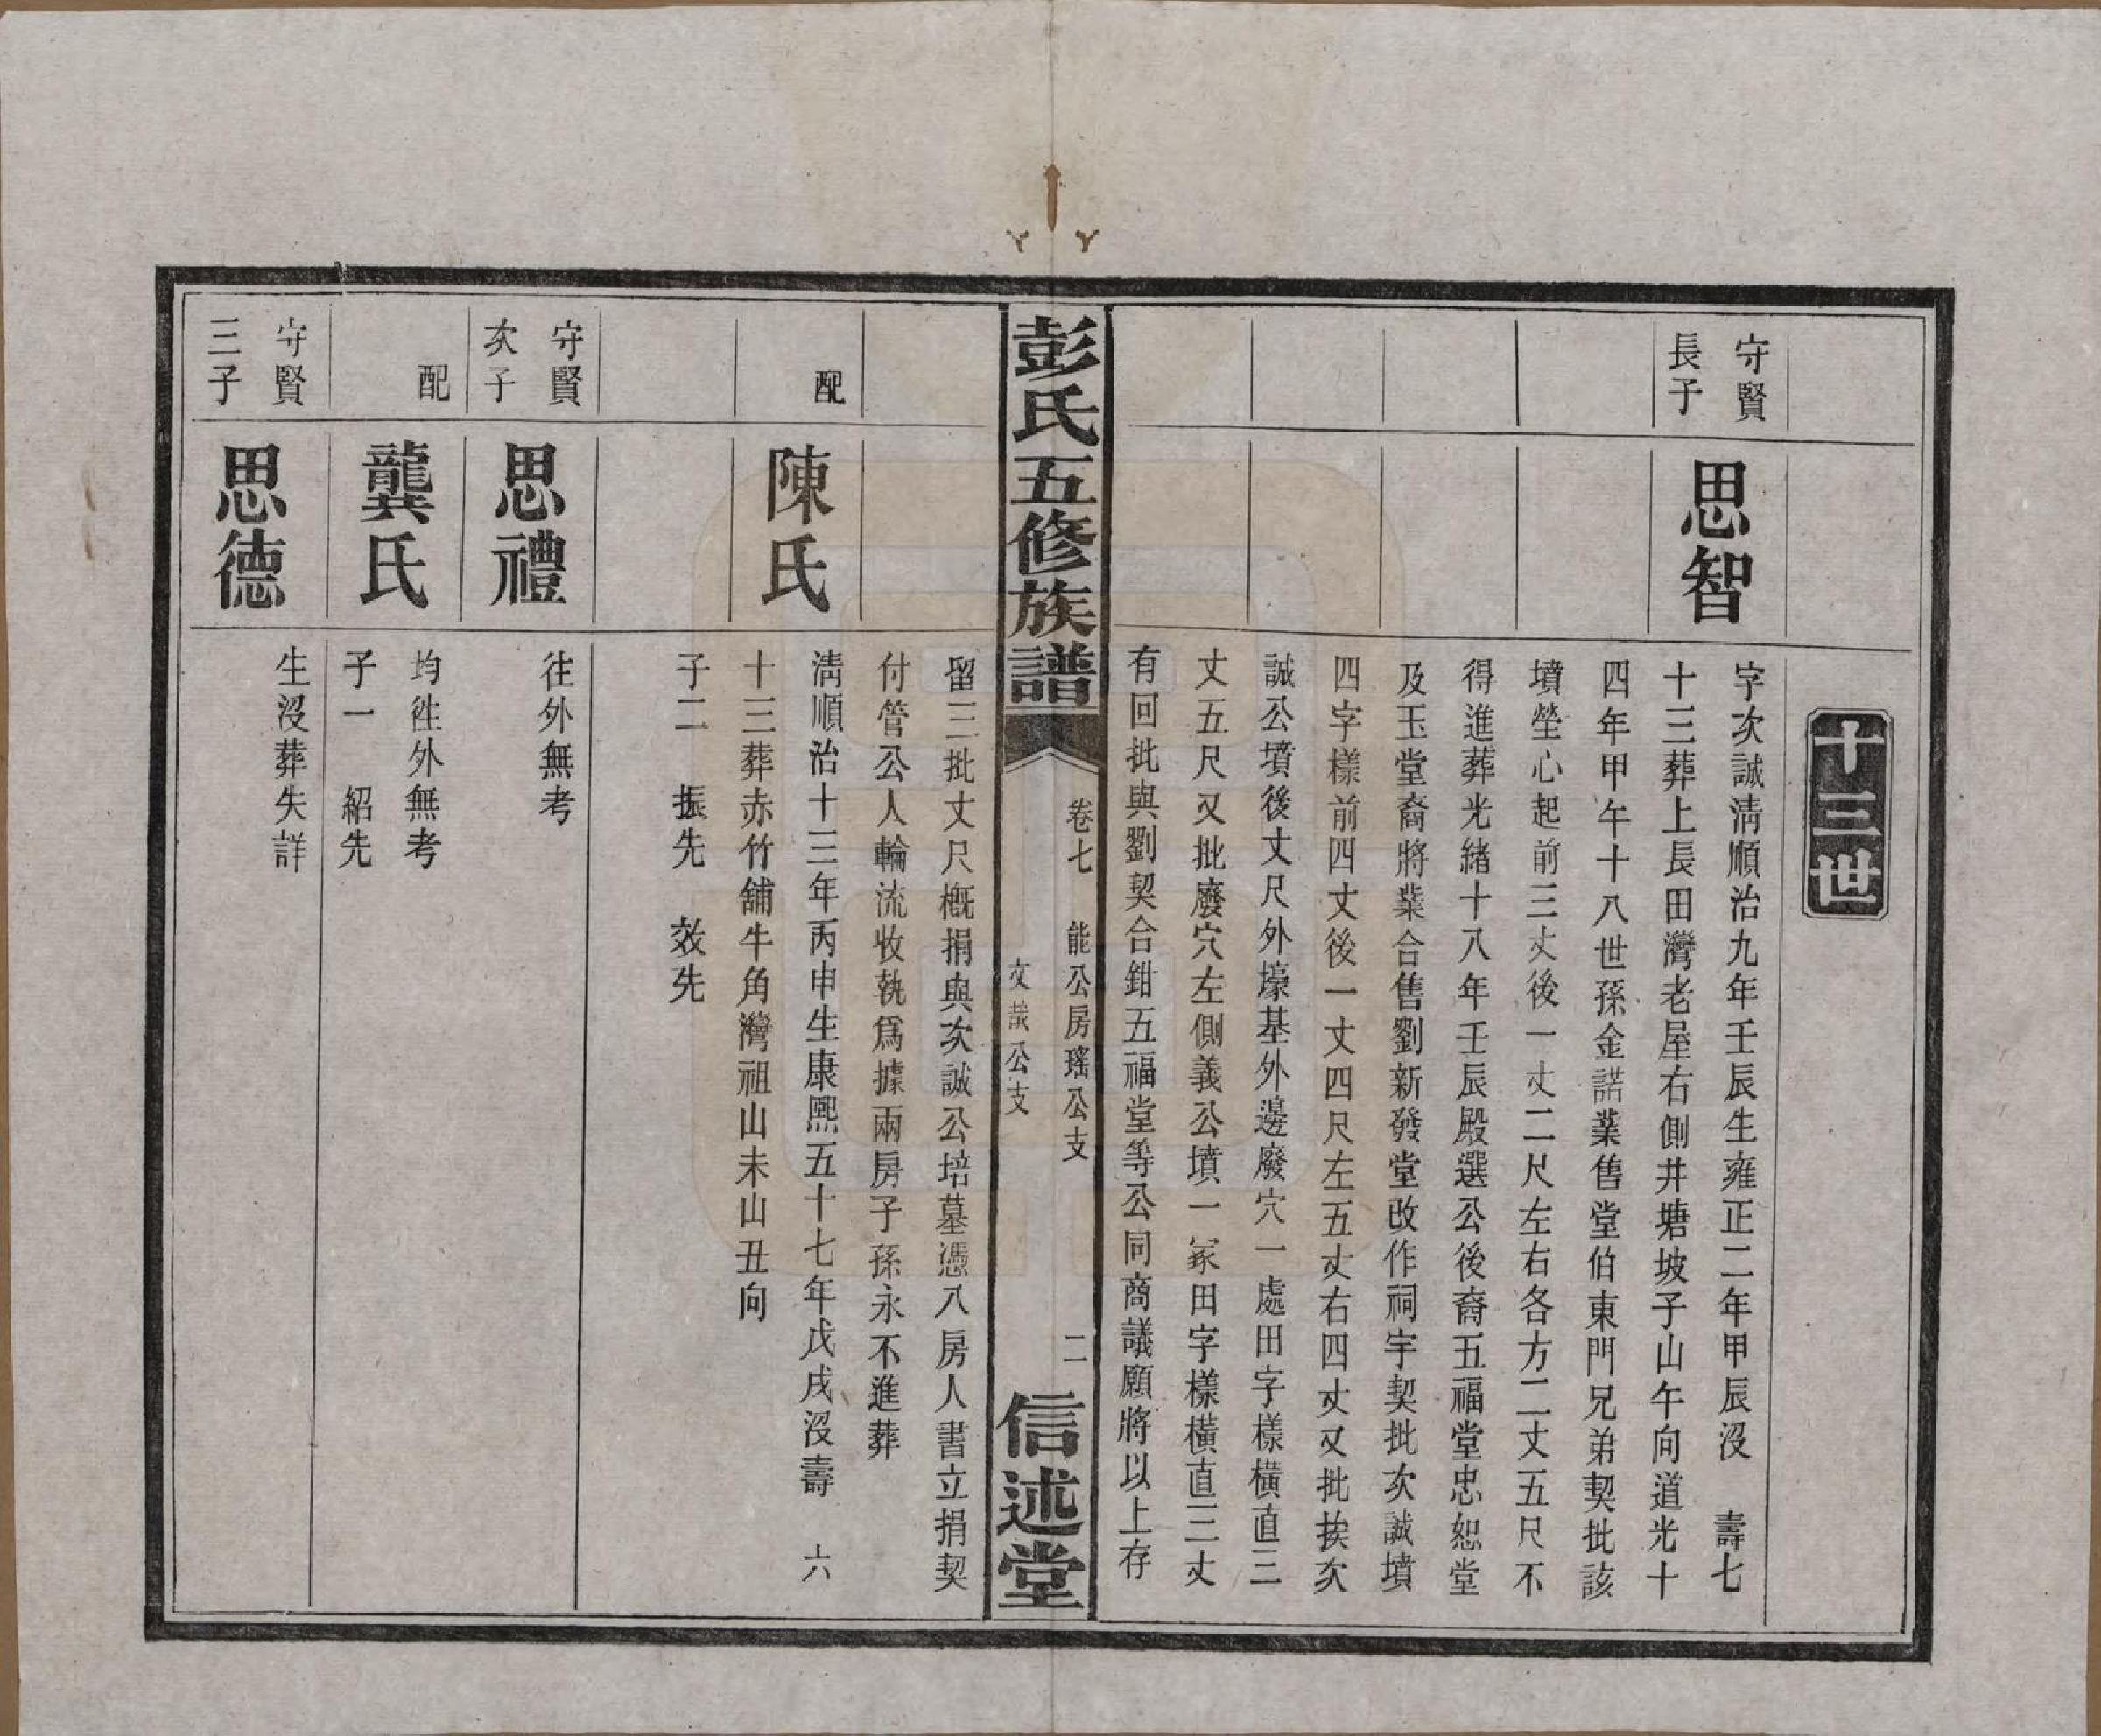 十三世
守賢
長子
思智
字次誠淸順治九年壬辰生雍正二年甲辰沒　壽七
十三葬上長田灣老屋右側井塘坡子山午向道光十
四年甲午十八世孫金諾業售堂伯東門兄弟契批該
墳塋心起前三丈後一丈二尺左右各方二丈五尺不
得進葬光緒十八年壬辰殿選公後裔五福堂忠恕堂
及玉堂裔將業合售劉新發堂改作祠宇契批次誠墳
四字樣前四丈後一丈四尺左五丈右四丈又批挨次
誠公墳後丈尺外壕基外邊廢穴一處田字樣橫直三
丈五尺又批廢穴左側義公墳一冢田字樣橫直三丈
有回批與劉契合鉗五福堂等公同商議願將以上存
彭氏五修族譜
卷七　能公房瑤公支
文哉公支
二
信述堂
留三批丈尺概捐與次誠公培墓憑八房人書立捐契
付管公人輪流收執爲據兩房子孫永不進葬
配
陳氏
淸順治十三年丙申生康熙五十七年戊戌沒壽　六
十三葬赤竹舖牛角灣祖山未山丑向
子二　振先　效先
守賢
次子
思禮
往外無考
配
龔氏
均徃外無考
子一　紹先
守賢
三子
思德
生沒葬失詳